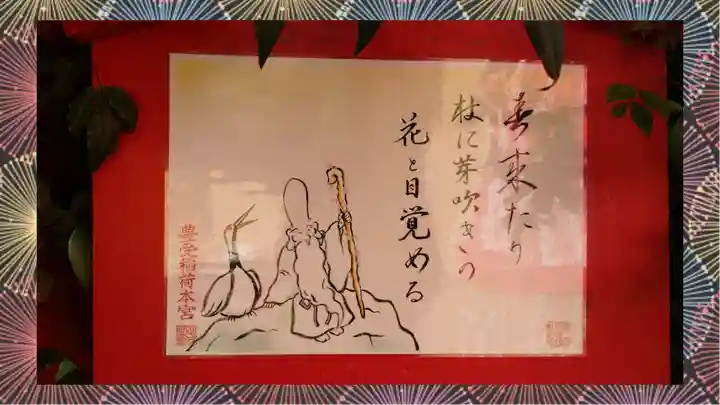 春来たり
杖に芽吹きの
花と目覚める
豊受稲荷本宮